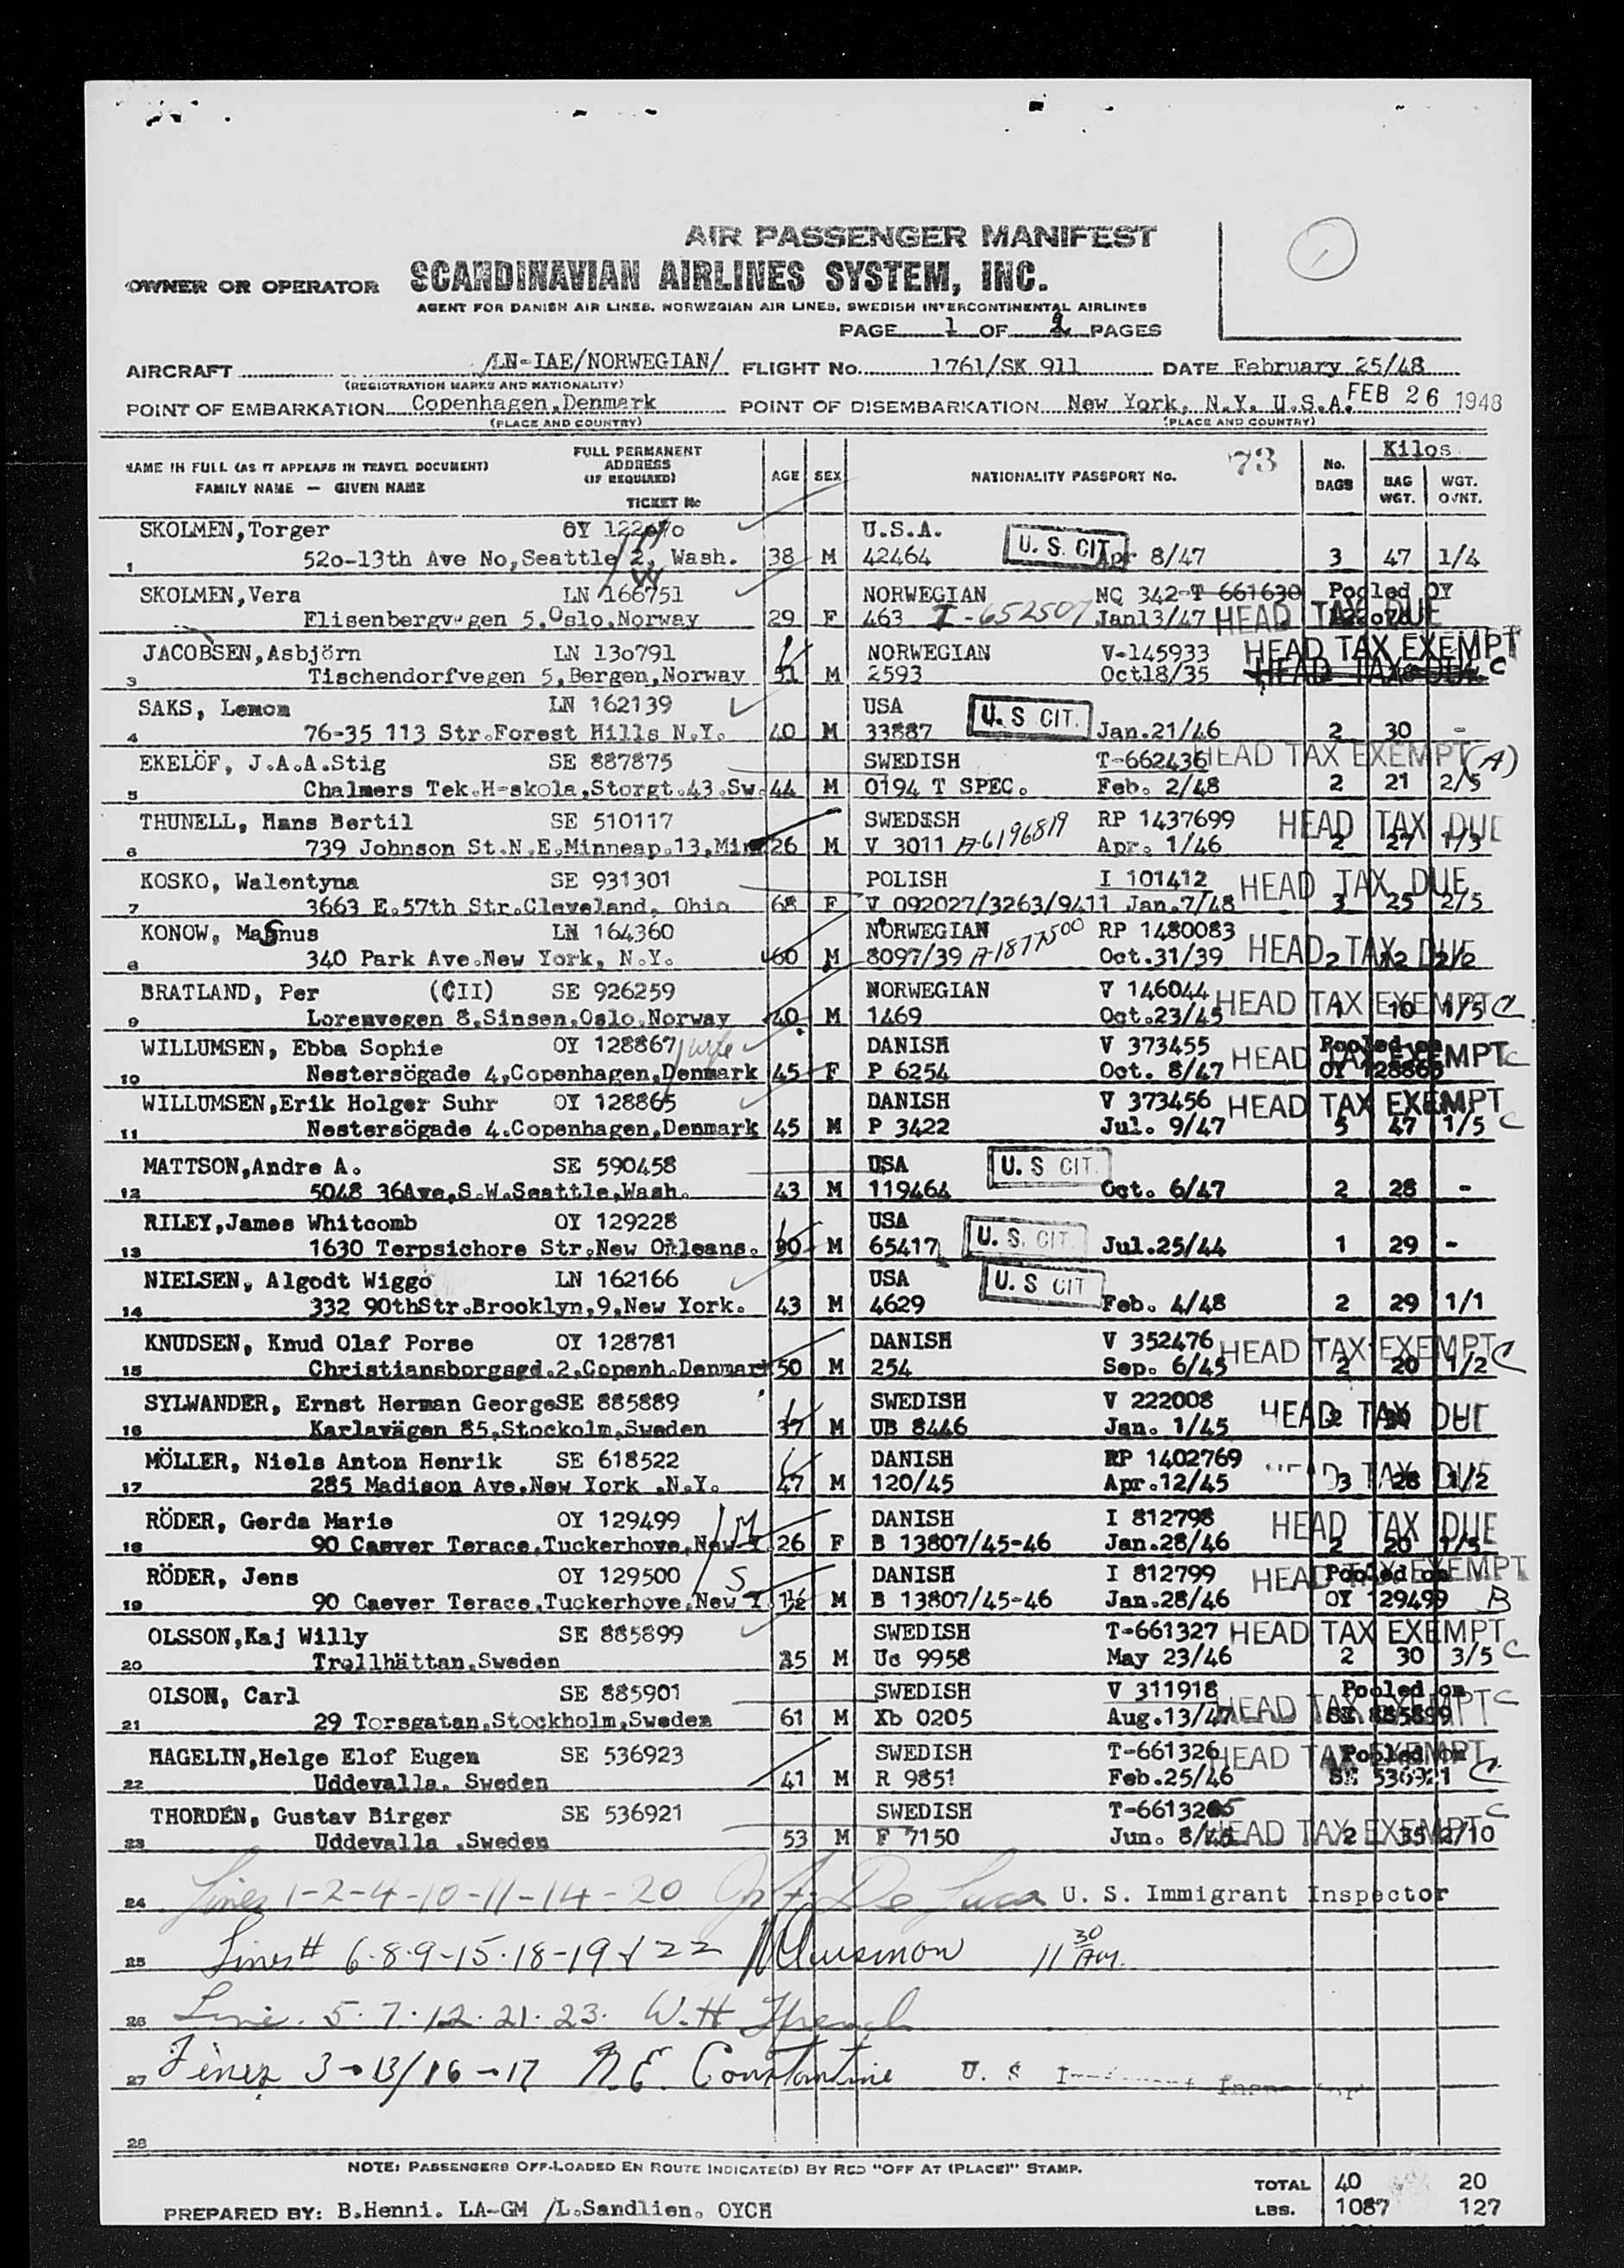 AIR PASSENGER MANIFEST
OWNER OR OPERATOR SCANDINAVIAN AIRLINES SYSTEM, INC.
AGENT FOR DANISH AIR LINES, NORWEGIAN AIR LINES, SWEDISH INTERCONTINENTAL AIRLINES
PAGE 1 OF 2 PAGES
AIRCRAFT /LN-IAE/NORWEGIAN/ FLIGHT No. 1761/SK 911 DATE February 25/48
(REGISTRATION MARKS AND NATIONALITY)
POINT OF EMBARKATION Copenhagen,Denmark POINT OF DISEMBARKATION New York, N.Y. U.S.A. FEB 26 1948
(PLACE AND COUNTRY) (PLACE AND COUNTRY)
NAME IN FULL (AS IT APPEARS IN TRAVEL DOCUMENT) FAMILY NAME — GIVEN NAME FULL PERMANENT ADDRESS (IF REQUIRED) TICKET No AGE SEX NATIONALITY PASSPORT No. 73 No. BAGS Kilos BAG WGT. WGT. OVNT.
SKOLMEN,Torger OY 122070 U.S.A.
1 520-13th Ave No,Seattle 2, Wash. 38 M 42464 U. S. CIT Apr 8/47 3 47 1/4
SKOLMEN,Vera W LN 166751 NORWEGIAN NQ 342-T 661630 Pooled OY
Elisenbergvegen 5,Oslo,Norway 29 F 463 I-652507 Jan13/47 HEAD TAX DUE
JACOBSEN,Asbjörn LN 130791 NORWEGIAN V-145933 HEAD TAX EXEMPT
3 Tischendorfvegen 5,Bergen,Norway 51 M 2593 Oct18/35 HEAD TAX DUE C
SAKS, Lemon LN 162139 USA
4 76-35 113 Str.Forest Hills N.Y. 40 M 33887 U. S CIT. Jan.21/46 2 30 -
EKELÖF, J.A.A.Stig SE 887875 SWEDISH T-662436 HEAD TAX EXEMPT (A)
5 Chalmers Tek.H-skola,Storgt.43.Sw. 44 M 0194 T SPEC. Feb. 2/48 2 21 2/5
THUNELL, Hans Bertil SE 510117 SWEDISH RP 1437699 HEAD TAX DUE
6 739 Johnson St.N.E.Minneap.13,Min 26 M V 3011 A-6196819 Apr. 1/46 2 27 1/3
KOSKO, Walentyna SE 931301 POLISH I 101412 HEAD TAX DUE
7 3663 E.57th Str.Cleveland, Ohio 68 F V 092027/3263/9411 Jan.7/48 3 25 2/5
KONOW, Magnus LN 164360 NORWEGIAN RP 1480083
8 340 Park Ave.New York, N.Y. 60 M 8097/39 A-1877500 Oct.31/39 HEAD TAX DUE 2 12 2/2
BRATLAND, Per (CII) SE 926259 NORWEGIAN V 146044 HEAD TAX EXEMPT C
9 Lorenvegen 8,Sinsen,Oslo,Norway 40 M 1469 Oct.23/45 1 10 1/5
WILLUMSEN, Ebba Sophie OY 128867 wife DANISH V 373455 Pooled on
10 Nestersögade 4,Copenhagen,Denmark 45 F P 6254 Oct. 8/47 HEAD TAX EXEMPT C OY 128865
WILLUMSEN,Erik Holger Suhr OY 128865 DANISH V 373456 HEAD TAX EXEMPT
11 Nestersögade 4.Copenhagen,Denmark 45 M P 3422 Jul. 9/47 5 47 1/5 C
MATTSON,Andre A. SE 590458 USA U. S CIT.
12 5048 36Ave,S.W.Seattle,Wash. 43 M 119464 Oct. 6/47 2 28 -
RILEY,James Whitcomb OY 129228 USA
13 1630 Terpsichore Str.New Orleans. 30 M 65417 U. S. CIT. Jul.25/44 1 29 -
NIELSEN, Algodt Wiggo LN 162166 USA U. S CIT
14 332 90thStr.Brooklyn,9,New York. 43 M 4629 Feb. 4/48 2 29 1/1
KNUDSEN, Knud Olaf Porse OY 128781 DANISH V 352476 HEAD TAX EXEMPT C
15 Christiansborgsgd.2,Copenh.Denmark 50 M 254 Sep. 6/45 2 20 1/2
SYLWANDER, Ernst Herman George SE 885889 SWEDISH V 222008
16 Karlavägen 85,Stockolm,Sweden 37 M UB 8446 Jan. 1/45 HEAD TAX DUE 2
MÖLLER, Niels Anton Henrik SE 618522 DANISH RP 1402769
17 285 Madison Ave,New York ,N.Y. 47 M 120/45 Apr.12/45 TAX DUE 3 28 3/2
RÖDER, Gerda Marie OY 129499 M DANISH I 812798 HEAD TAX DUE
18 90 Caever Terace,Tuckerhove,New Y. 26 F B 13807/45-46 Jan.28/46 2 20 1/5
RÖDER, Jens OY 129500 S DANISH I 812799 HEAD TAX EXEMPT Pooled on
19 90 Caever Terace,Tuckerhove,New Y. 1½ M B 13807/45-46 Jan.28/46 OY 129499 B
OLSSON,Kaj Willy SE 885899 SWEDISH T-661327 HEAD TAX EXEMPT
20 Trollhättan,Sweden 35 M Uc 9958 May 23/46 2 30 3/5 C
OLSON, Carl SE 885901 SWEDISH V 311918 Pooled on
21 29 Torsgatan,Stockholm,Sweden 61 M Xb 0205 Aug.13/47 HEAD TAX EXEMPT C SE 885899
HAGELIN,Helge Elof Eugen SE 536923 SWEDISH T-661326 HEAD TAX EXEMPT Pooled on
22 Uddevalla, Sweden 41 M R 9851 Feb.25/46 SE 536921 C
THORDÉN, Gustav Birger SE 536921 SWEDISH T-661325 C
23 Uddevalla ,Sweden 53 M F 7150 Jun. 8/45 HEAD TAX EXEMPT 2 35 2/10
24 Lines 1-2-4-10-11-14-20 De Luca U. S. Immigrant Inspector
25 Lines # 6-8-9-15-18-19 & 22 11 30 AM.
26 Line. 5-7-12-21-23. W.H.
27 Lines 3-13/16-17 N.E. Constantine U. S Immigrant Inspector
28
NOTE: PASSENGERS OFF-LOADED EN ROUTE INDICATE(D) BY RED "OFF AT (PLACE)" STAMP.
TOTAL 40 20
PREPARED BY: B.Henni. LA-GM /L.Sandlien. OYCH LBS. 1087 127